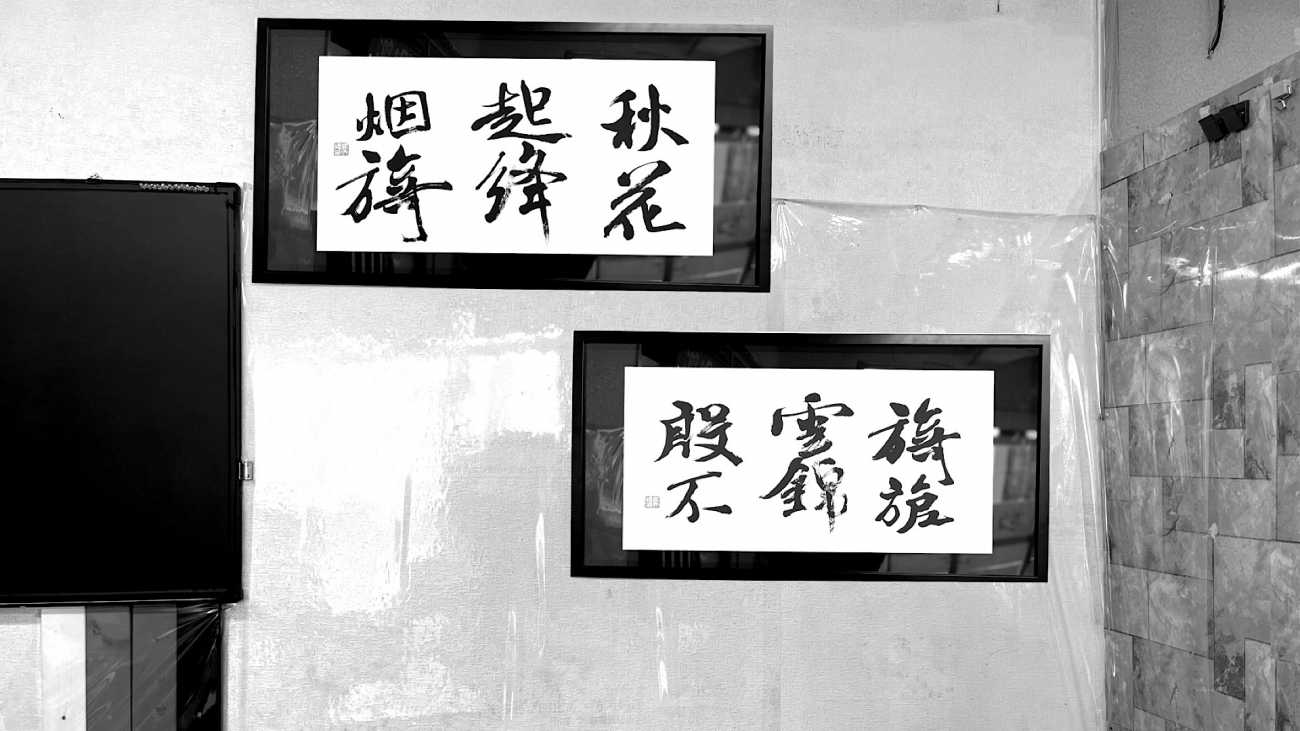 秋花
起绛
烟旖
旖旎
雲錦
殷不